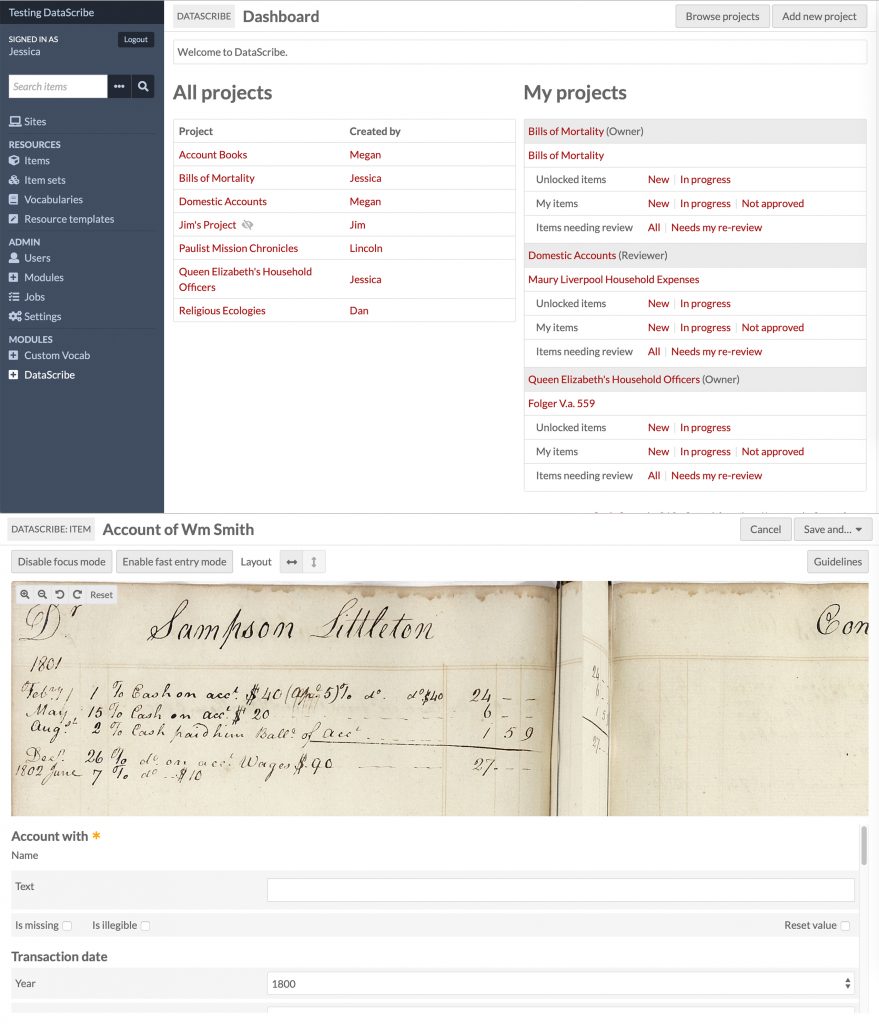 Testing DataScribe
SIGNED IN AS
Jessica
Logout
Search items
Sites
RESOURCES
Items
Item sets
Vocabularies
Resource templates
ADMIN
Users
Modules
Jobs
Settings
MODULES
Custom Vocab
DataScribe
DATASCRIBE Dashboard
Browse projects Add new project
Welcome to DataScribe.
All projects
Project Created by
Account Books Megan
Bills of Mortality Jessica
Domestic Accounts Megan
Jim's Project Jim
Paulist Mission Chronicles Lincoln
Queen Elizabeth's Household
Officers Jessica
Religious Ecologies Dan
My projects
Bills of Mortality (Owner)
Bills of Mortality
Unlocked items New In progress
My items New In progress Not approved
Items needing review All Needs my re-review
Domestic Accounts (Reviewer)
Maury Liverpool Household Expenses
Unlocked items New In progress
My items New In progress Not approved
Items needing review All Needs my re-review
Queen Elizabeth's Household Officers (Owner)
Folger V.a. 559
Unlocked items New In progress
My items New In progress Not approved
Items needing review All Needs my re-review
DATASCRIBE: ITEM Account of Wm Smith
Cancel Save and...
Disable focus mode Enable fast entry mode Layout
Guidelines
Reset
Dr Sampson Littleton Con
1801
1 To Cash on acct. $40 do. do $40 24 - -
May 15 To Cash on acct $20 6 - -
Augst 2 To Cash paid him Balle. of acct. 1 5 9
Decr. 26 To do. on acct Wages $90 27 - -
1802 June 7 To do $10
Account with *
Name
Text
Is missing Is illegible Reset value
Transaction date
Year 1800